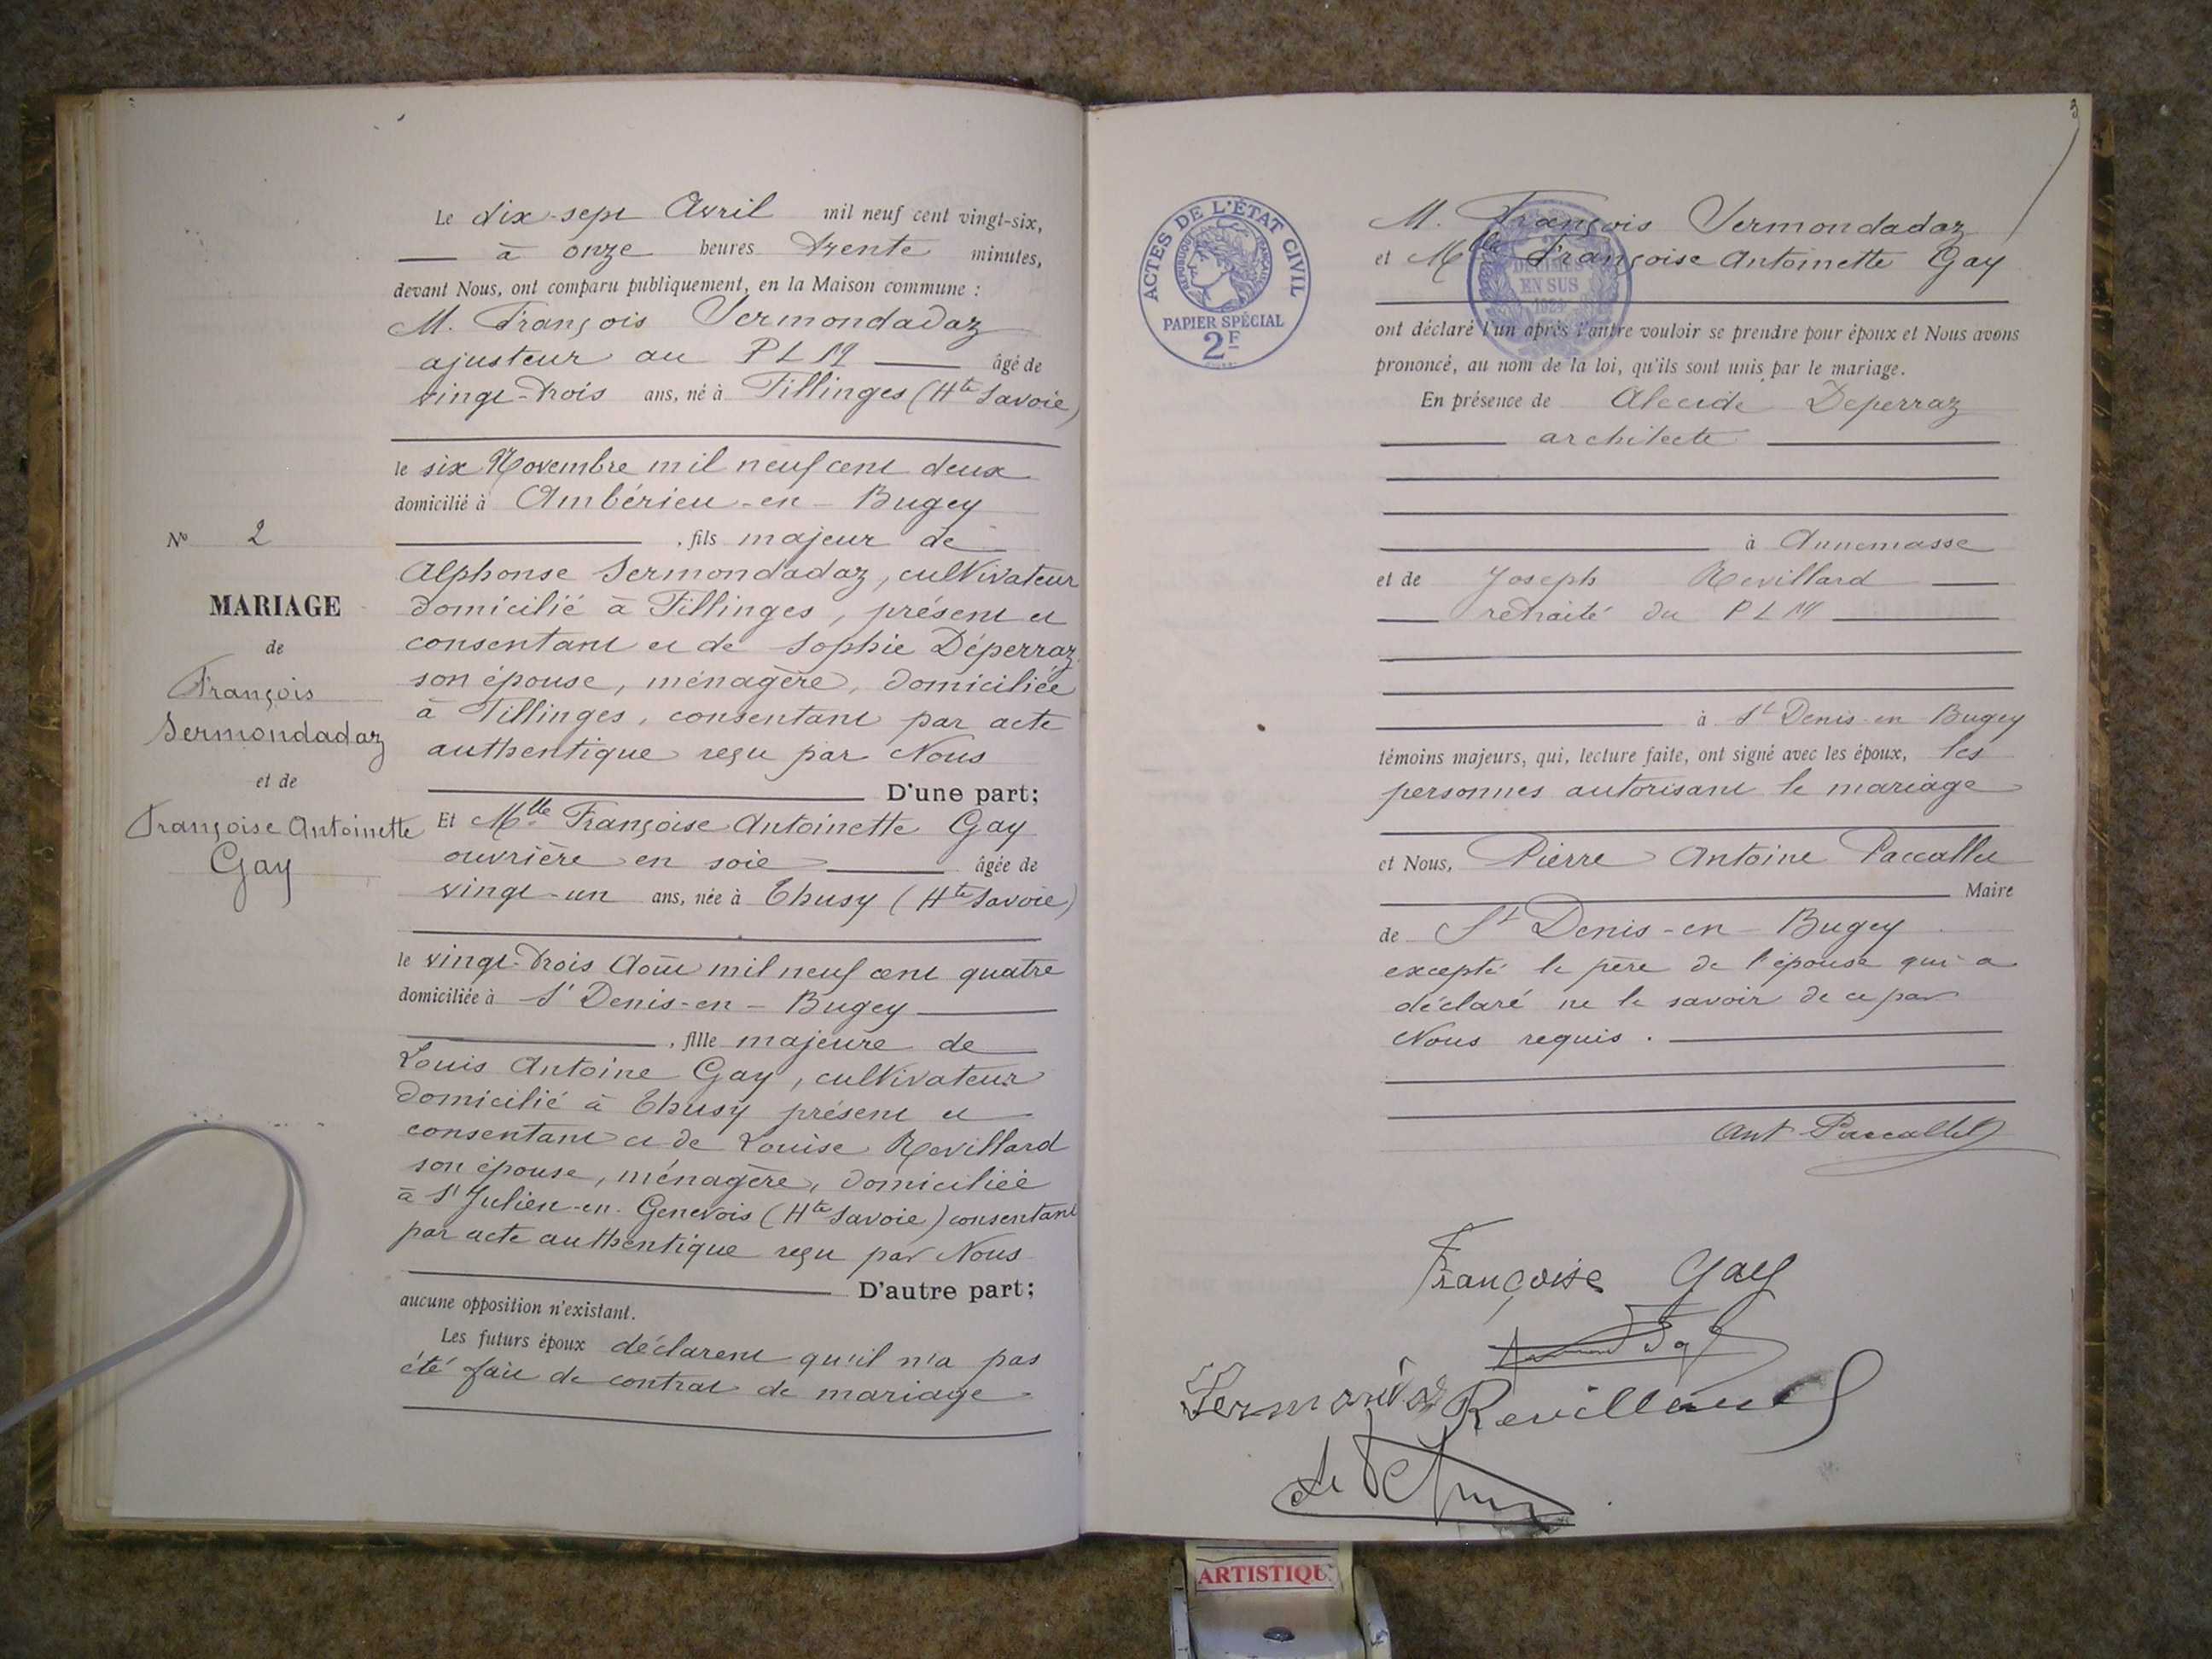 Le dix-sept Avril mil neuf cent vingt-six,
à onze heures trente minutes,
devant Nous, ont comparu publiquement, en la Maison commune :
M. François Sermondadaz
ajusteur au PLM âgé de
vingt-trois ans, né à Fillinges (Hte Savoie)
le six Novembre mil neuf cent deux
domicilié à Ambérieu-en-Bugey
, fils majeur de
Alphonse Sermondadaz, cultivateur
domicilié à Fillinges, présent et
consentant et de Sophie Déperraz
son épouse, ménagère, domiciliée
à Fillinges, consentant par acte
authentique reçu par Nous
D'une part;
Et Mlle Françoise Antoinette Gay
ouvrière en soie âgée de
vingt-un ans, née à Thusy (Hte Savoie)
le vingt-trois Août mil neuf cent quatre
domiciliée à St Denis-en-Bugey
, fille majeure de
Louis Antoine Gay, cultivateur
domicilié à Thusy présent et
consentant et de Louise Revillard
son épouse, ménagère, domiciliée
à St Julien-en-Genevois (Hte Savoie) consentant
par acte authentique reçu par Nous
D'autre part;
aucune opposition n'existant.
Les futurs époux déclarent qu'il n'a pas
été fait de contrat de mariage
No 2
MARIAGE
de
François
Sermondadaz
et de
Françoise Antoinette
Gay
3
ACTES DE L'ÉTAT CIVIL
RÉPUBLIQUE FRANÇAISE
PAPIER SPÉCIAL
2F
DÉCIMES
EN SUS
1924
M. François Sermondadaz
et Mlle Françoise Antoinette Gay
ont déclaré l'un après l'autre vouloir se prendre pour époux et Nous avons
prononcé, au nom de la loi, qu'ils sont unis par le mariage.
En présence de Alcide Deperraz
architecte
à Annemasse
et de Joseph Revillard
retraité du PLM
à St Denis en Bugey
témoins majeurs, qui, lecture faite, ont signé avec les époux, les
personnes autorisant le mariage
et Nous, Pierre Antoine Paccallet
Maire
de St Denis-en-Bugey
excepté le père de l'épouse qui a
déclaré ne le savoir de ce par
Nous requis.
Ant Paccallet
Françoise Gay
Revillard
ARTISTIQU